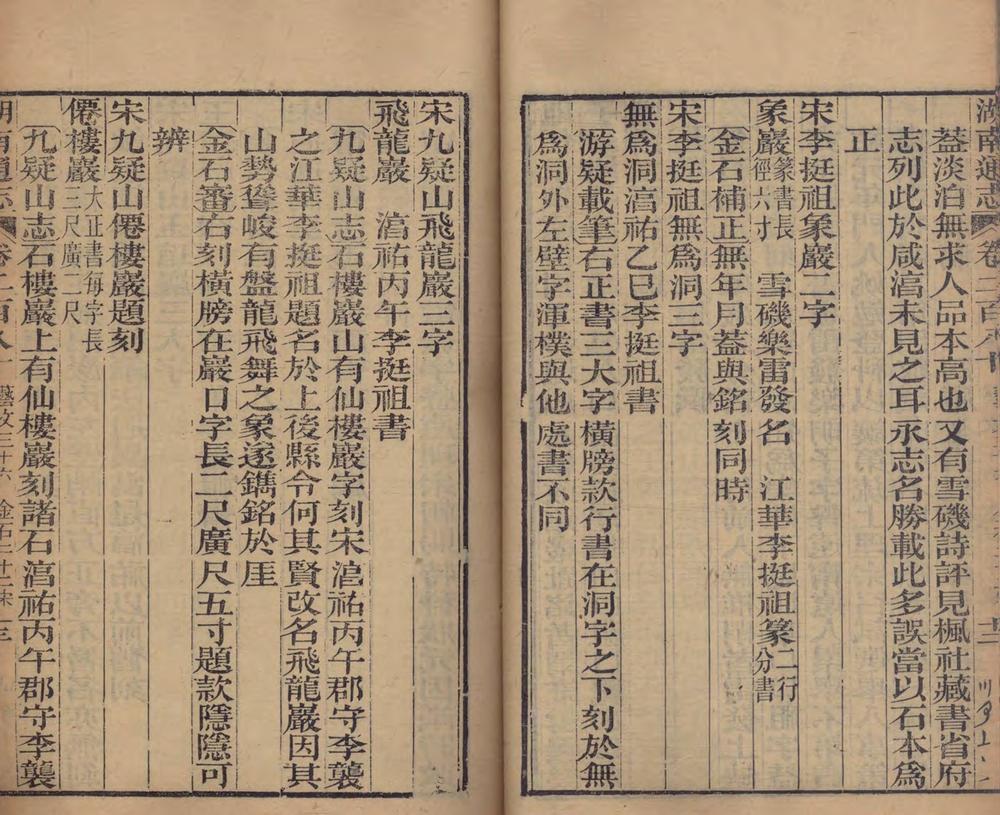 湖南通志 卷二百八
蓋淡泊無求人品本高也又有雪磯詩評見楓社藏書省府
志列此於咸湻未見之耳永志名勝載此多誤當以石本爲
正
宋李挺祖象巖二字
象巖篆書長徑六寸 雪磯樂雷發名 江華李挺祖篆二行分書
〔金石補正〕無年月蓋與銘刻同時
宋李挺祖無爲洞三字
無爲洞湻祐乙巳李挺祖書
〔游疑載筆〕右正書三大字橫牓款行書在洞字之下刻於無
爲洞外左壁字渾樸與他處書不同
宋九疑山飛龍巖三字
飛龍巖 湻祐丙午李挺祖書
〔九疑山志〕石樓巖山有仙樓巖字刻宋湻祐丙午郡守李襲
之江華李挺祖題名於上後縣令何其賢改名飛龍巖因其
山勢聳峻有盤龍飛舞之象遂鐫銘於厓
金石審右刻橫牓在巖口字長二尺廣尺五寸題款隱隱可
辨
宋九疑山僊樓巖題刻
僊樓巖大正書每字長三尺廣二尺
〔九疑山志〕石樓巖上有仙樓巖刻諸石湻祐丙午郡守李襲
湖南通志 卷二百八 藝文三十六 金石二十二宋 三